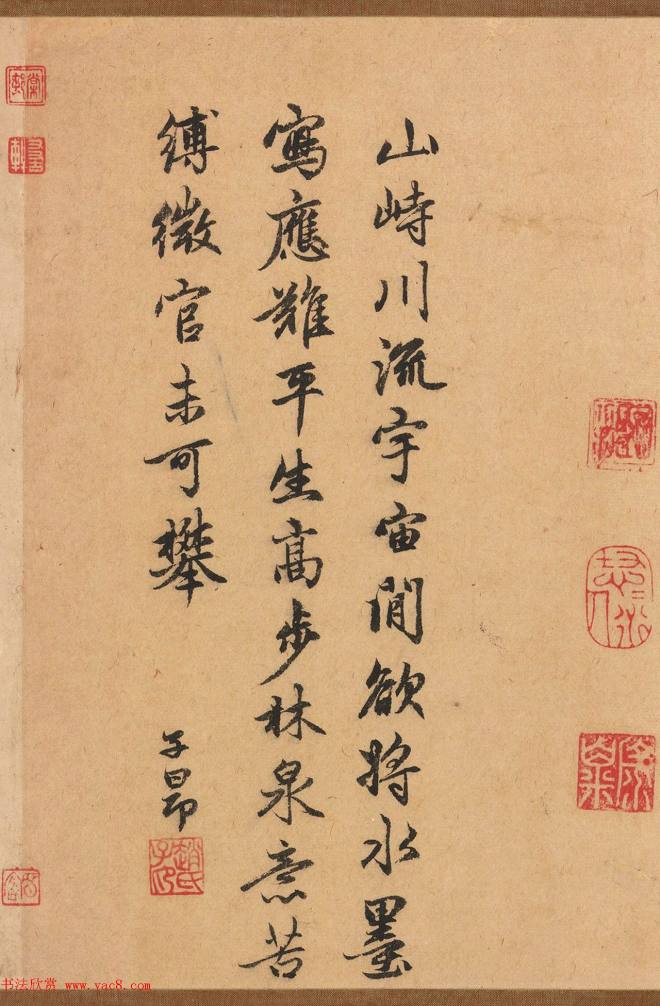 山峙川流宇宙間欲將水墨
寫應難平生高步林泉意苦
縛微官未可攀
子昂
趙氏子昂
书法欣赏 www.yac8.com